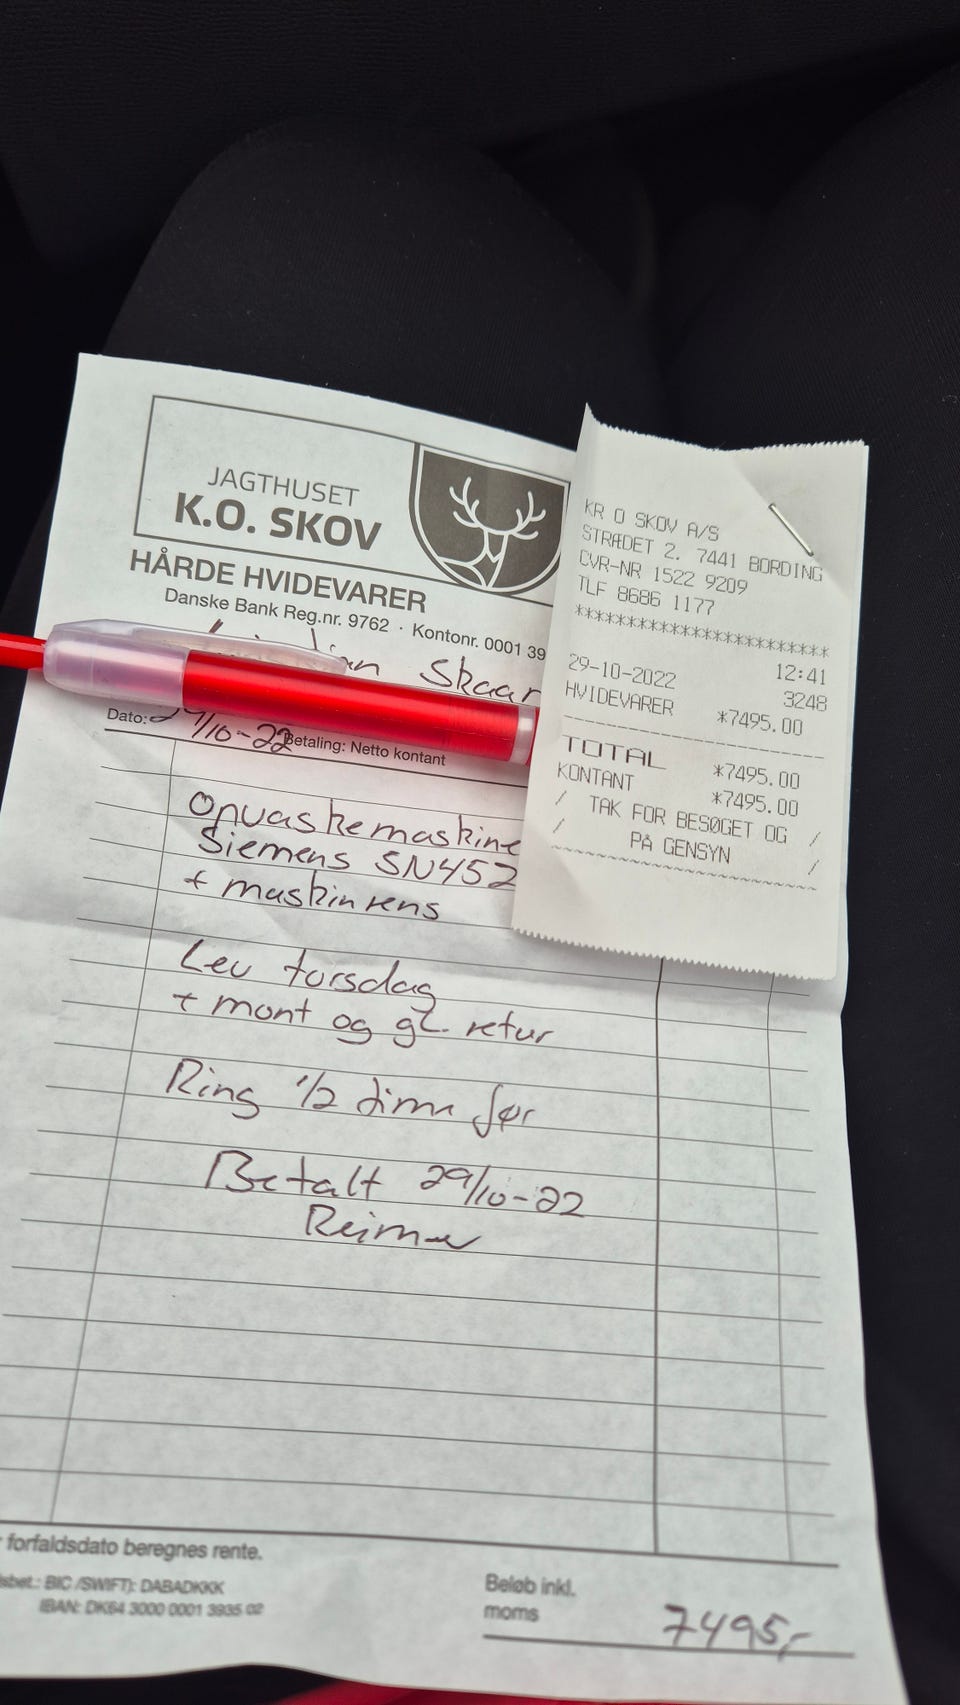 JAGTHUSET
K.O. SKOV
HÅRDE HVIDEVARER
Danske Bank Reg.nr. 9762 · Kontonr. 0001 39
Skaar
Dato: 29/10-22 Betaling: Netto kontant
Opvaskemaskine
Siemens SN452
+ maskinrens
Lev torsdag
+ mont og gl. retur
Ring 1/2 time før
Betalt 29/10-22
forfaldsdato beregnes rente.
BIC /SWIFT): DABADKKK
IBAN: DK64 3000 0001 3935 02
Beløb inkl.
moms 7495,-
KR O SKOV A/S
STRÆDET 2. 7441 BORDING
CVR-NR 1522 9209
TLF 8686 1177
************************
12:41
29-10-2022 3248
HVIDEVARER *7495.00
TOTAL *7495.00
KONTANT *7495.00
/ TAK FOR BESØGET OG /
/ PÅ GENSYN /